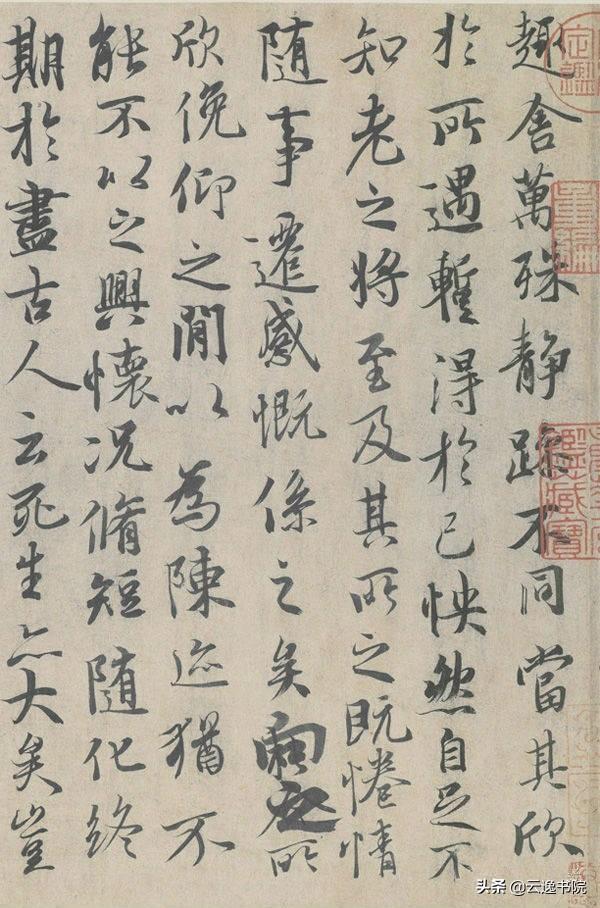 趣舍萬殊静躁不同當其欣
於所遇蹔得於己怏然自足不
知老之將至及其所之既惓情
隨事遷感慨係之矣向之所
欣俛仰之閒以為陳迹猶不
能不以之興懷况脩短隨化終
期於盡古人云死生亦大矣豈
头条 @云逸书院